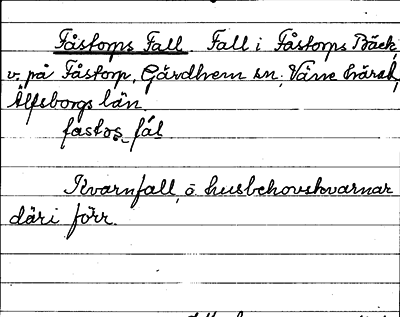 Fåstorps Fall Fall i Fåstorps Bäck
v. på Fåstorp, Gärdhem sn, Väne härad,
Älfsborgs län.
fastos fál
Kvarnfall, å husbehovskvarnar
däri förr.